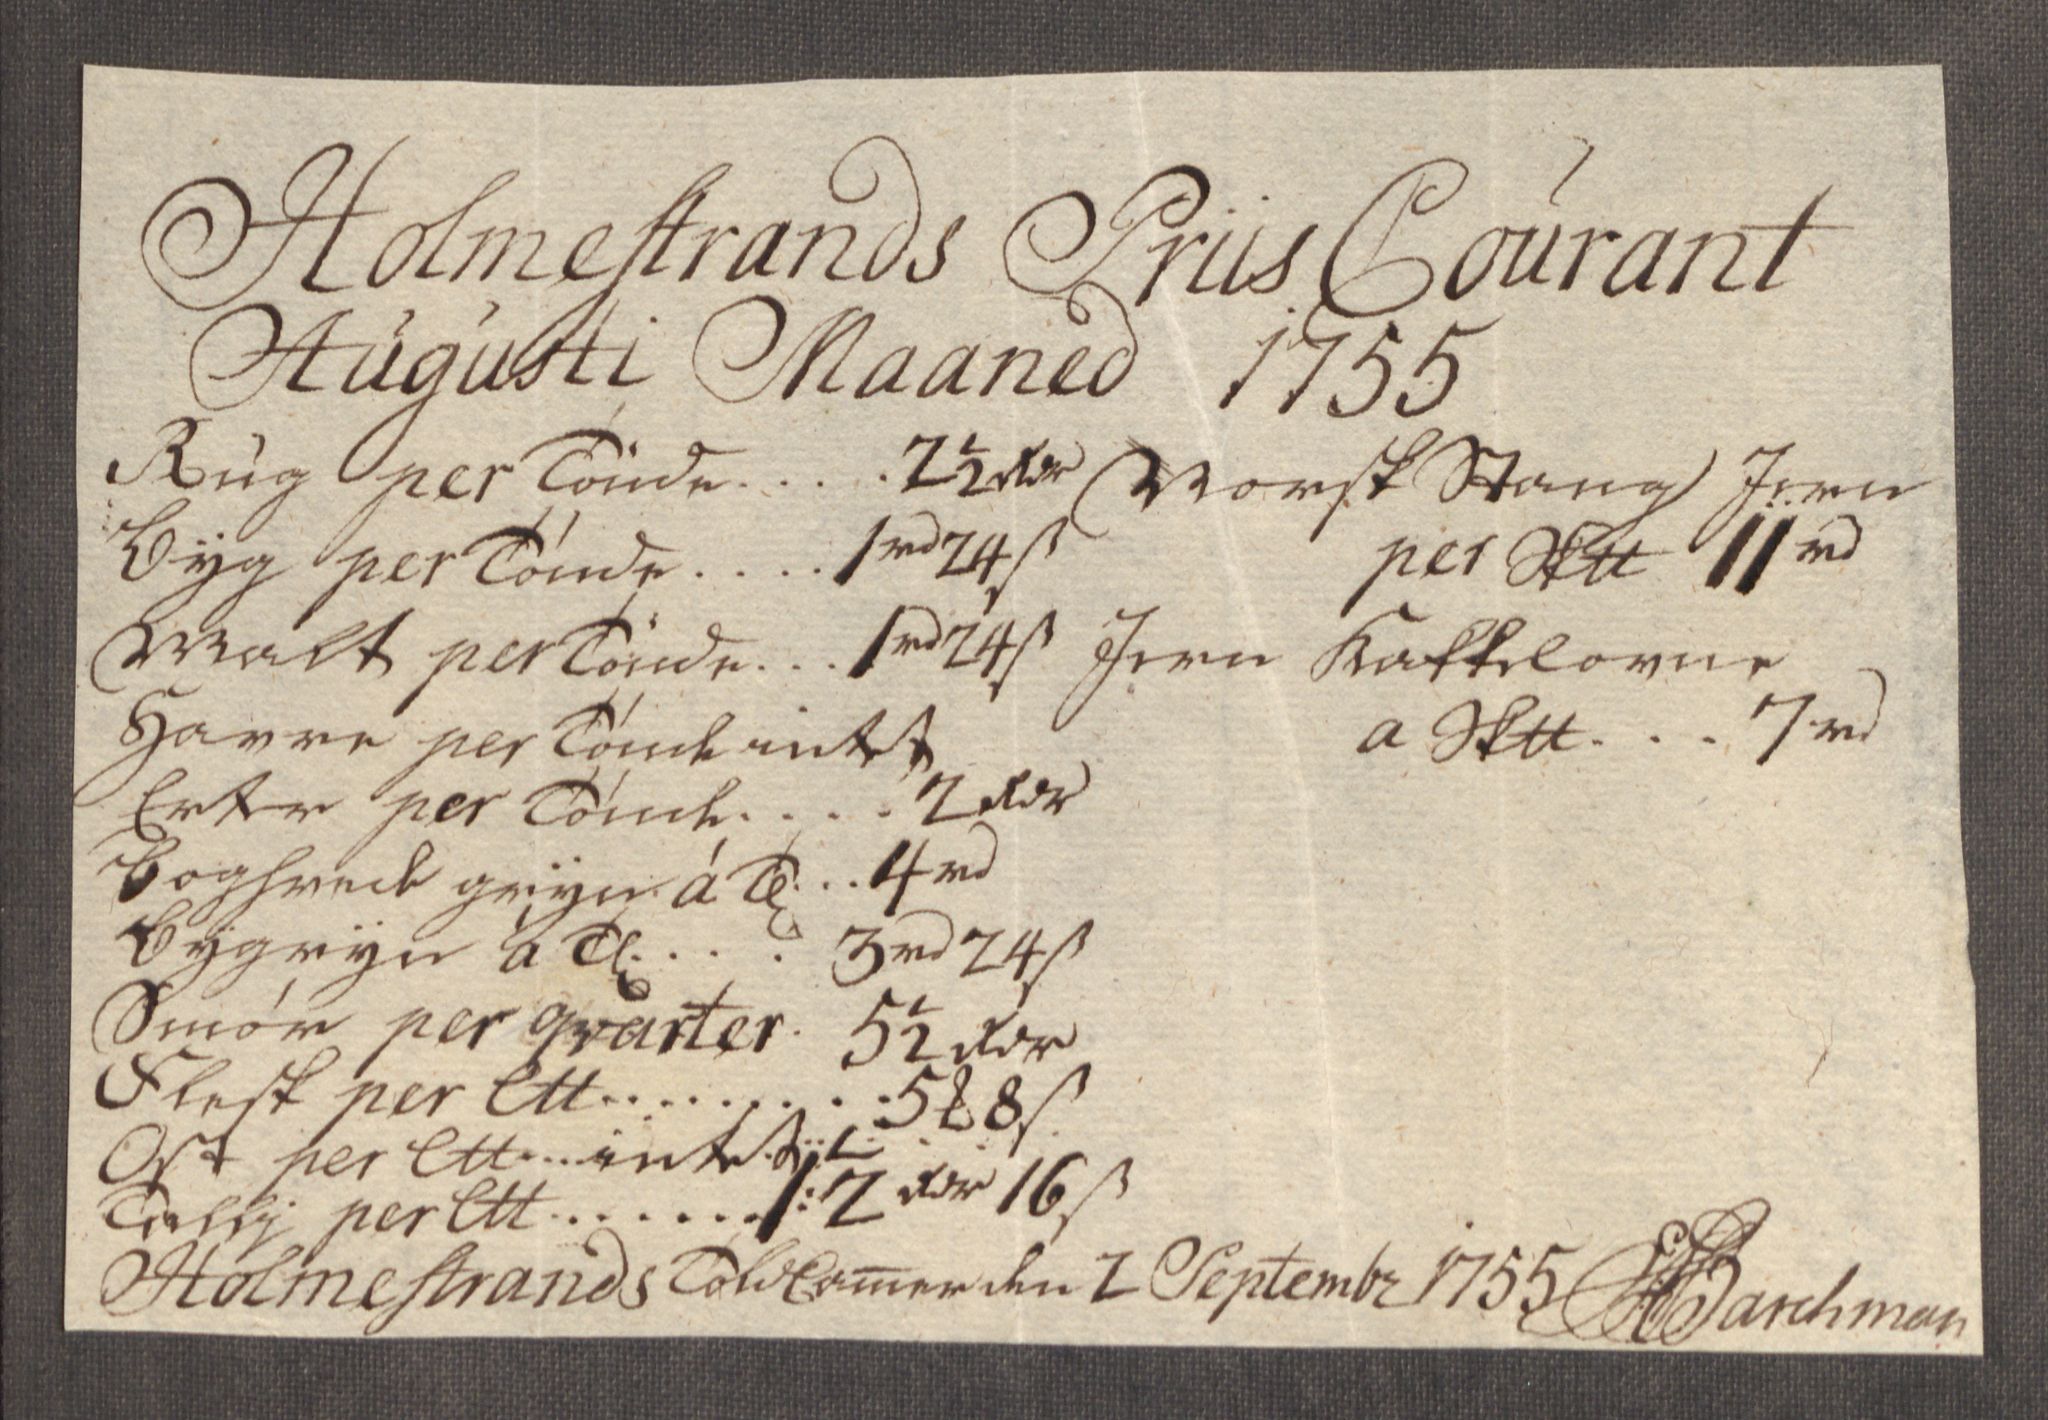 Holmestrands Priis Courant
Augusti Maaned 1755
Rug per Tönde.....2½ Rdr
Byg per Tónde.....1rd 24ß
Malt per Tönde...1rd 24ß
Havre per Tónde intet
Erter per Tónde.....2 Rdr
Boghvede gryn á Tó...4rd
Byggryn á Tó.... 3rd 24ß
Smór per qvarter. 5½ Rdr
Flesk per Ltt.......... 8ß
Ost per Ltt...intet
per Ltt....... 2 Rdr 16ß
Norsk Stang Jern
per Sktt 11rd
Jern Kakkelovne
a Sktt... 7rd
Holmestrands Told Camer den 2 Septembr 1755 Barchman